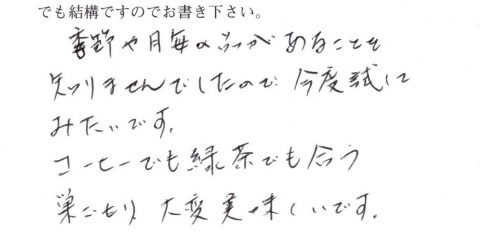 でも結構ですのでお書き下さい。
季節や月毎の品があることを
知りませんでしたので 今度試して
みたいです。
コーヒーでも緑茶でも合う
巣ごもり、大変美味しいです。